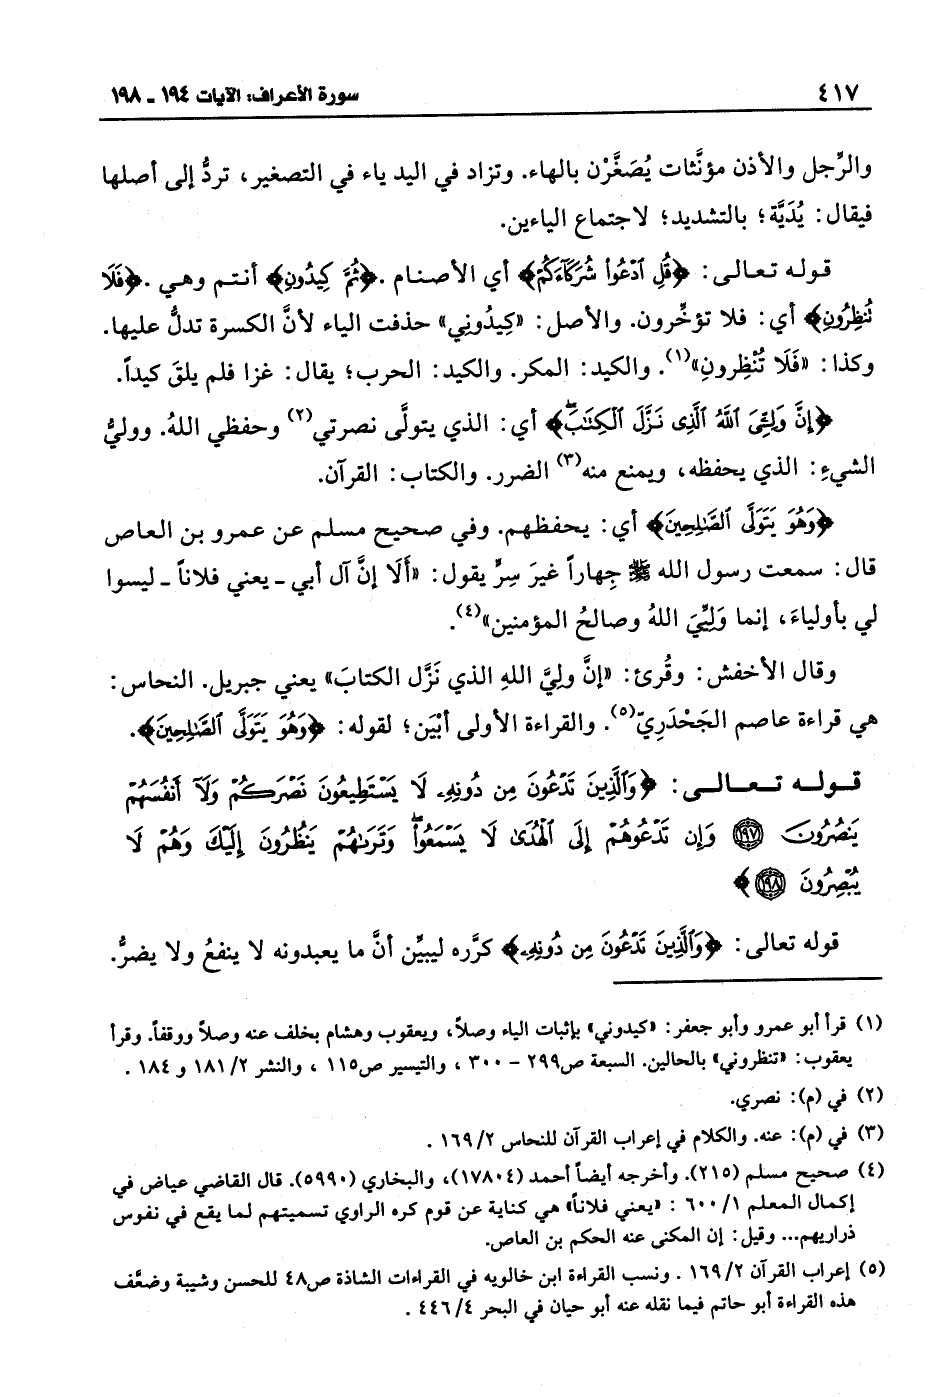 ٤١٧
سورة الأعراف: الآيات ١٩٤ ـ ١٩٨
والرِّجل والأذن مؤنَّثات يُصَغَّرْن بالهاء. وتزاد في اليد ياء في التصغير، تردُّ إلى أصلها
فيقال: يُدَيَّة؛ بالتشديد؛ لاجتماع الياءين.
قوله تعالى: ﴿قُلِ ٱدْعُوا۟ شُرَكَآءَكُمْ﴾ أي الأصنام. ﴿ثُمَّ كِيدُونِ﴾ أنتم وهي. ﴿فَلَا
تُنظِرُونِ﴾ أي: فلا تؤخِّرون. والأصل: «كِيدُونِي» حذفت الياء لأنَّ الكسرة تدلُّ عليها.
وكذا: «فَلَا تُنْظِرونِ»(١). والكيد: المكر. والكيد: الحرب؛ يقال: غزا فلم يلقَ كيداً.
﴿إِنَّ وَلِـِّۧىَ ٱللَّهُ ٱلَّذِى نَزَّلَ ٱلْكِتَـٰبَۖ﴾ أي: الذي يتولَّى نصرتي(٢) وحفظي اللهُ. ووليُّ
الشيءِ: الذي يحفظه، ويمنع منه(٣) الضرر. والكتاب: القرآن.
﴿وَهُوَ يَتَوَلَّى ٱلصَّـٰلِحِينَ﴾ أي: يحفظهم. وفي صحيح مسلم عن عمرو بن العاص
قال: سمعت رسول الله ﷺ جِهاراً غيرَ سِرٍّ يقول: «ألَا إنَّ آل أبي ـ يعني فلاناً ـ ليسوا
لي بأولياءَ، إنما وَلِيِّيَ اللهُ وصالحُ المؤمنين»(٤).
وقال الأخفش: وقُرئ: «إنَّ وليَّ اللهِ الذي نَزَّل الكتابَ» يعني جبريل. النحاس:
هي قراءة عاصم الجَحْدَرِيّ(٥). والقراءة الأولى أبْيَن؛ لقوله: ﴿وَهُوَ يَتَوَلَّى ٱلصَّـٰلِحِينَ﴾.
قوله تعالى: ﴿وَٱلَّذِينَ تَدْعُونَ مِن دُونِهِۦ لَا يَسْتَطِيعُونَ نَصْرَكُمْ وَلَآ أَنفُسَهُمْ
يَنصُرُونَ ١٩٧ وَإِن تَدْعُوهُمْ إِلَى ٱلْهُدَىٰ لَا يَسْمَعُوا۟ۖ وَتَرَىٰهُمْ يَنظُرُونَ إِلَيْكَ وَهُمْ لَا
يُبْصِرُونَ ١٩٨﴾
قوله تعالى: ﴿وَٱلَّذِينَ تَدْعُونَ مِن دُونِهِۦ﴾ كرَّره ليبيِّن أنَّ ما يعبدونه لا ينفعُ ولا يضرُّ.
(١) قرأ أبو عمرو وأبو جعفر: «كيدوني» بإثبات الياء وصلاً، ويعقوب وهشام بخلف عنه وصلاً ووقفاً. وقرأ
يعقوب: «تنظروني» بالحالين. السبعة ص٢٩٩ – ٣٠٠ ، والتيسير ص١١٥ ، والنشر ١٨١/٢ و ١٨٤ .
(٢) في (م): نصري.
(٣) في (م): عنه. والكلام في إعراب القرآن للنحاس ١٦٩/٢ .
(٤) صحيح مسلم (٢١٥). وأخرجه أيضاً أحمد (١٧٨٠٤)، والبخاري (٥٩٩٠). قال القاضي عياض في
إكمال المعلم ٦٠٠/١ : «يعني فلاناً» هي كناية عن قوم كره الراوي تسميتهم لما يقع في نفوس
ذراريهم... وقيل: إن المكنى عنه الحكم بن العاص.
(٥) إعراب القرآن ١٦٩/٢ . ونسب القراءة ابن خالويه في القراءات الشاذة ص٤٨ للحسن وشيبة وضعَّف
هذه القراءة أبو حاتم فيما نقله عنه أبو حيان في البحر ٤٤٦/٤ .